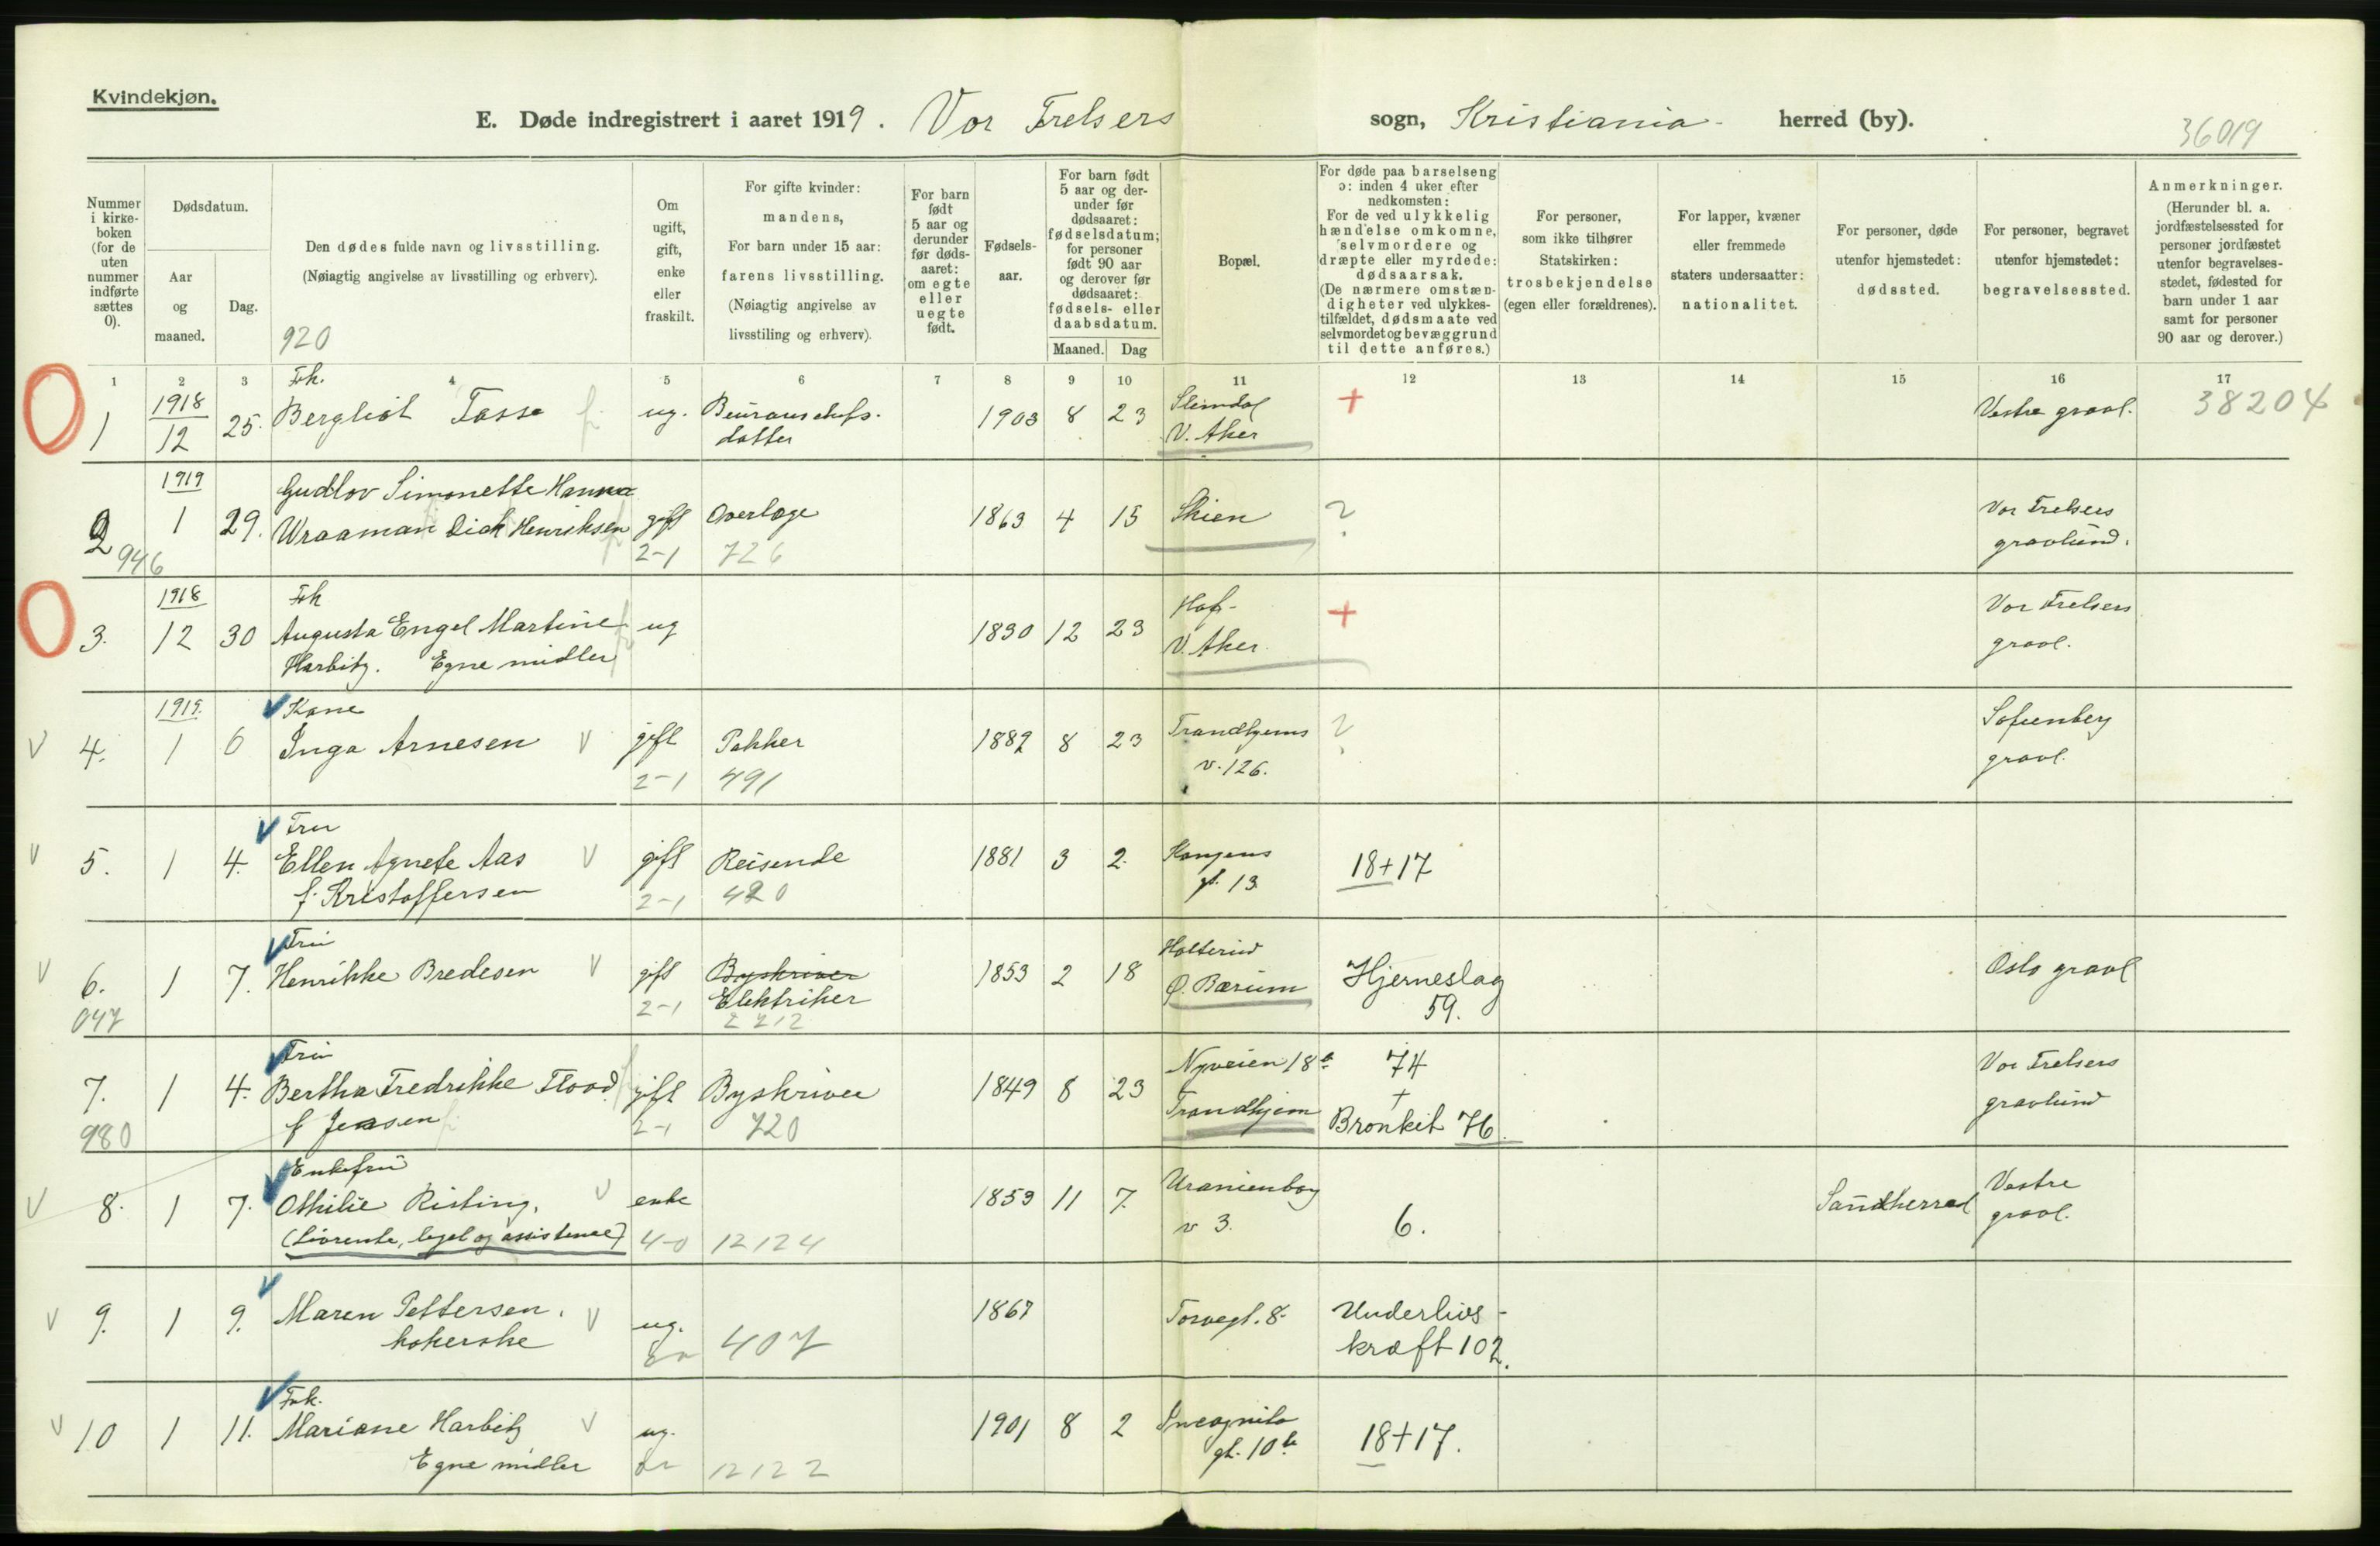 Kvindekjøn.
E. Døde indregistrert i aaret 1919. Vor Frelsers sogn, Kristiania herred (by).
36019
Nummer i kirke-boken (for de uten nummer indførte sættes 0).
Dødsdatum.
Aar og maaned.
Dag.
Den dødes fulde navn og livsstilling.
(Nøiagtig angivelse av livsstilling og erhverv).
920
Om ugift, gift, enke eller fraskilt.
For gifte kvinder: mandens,
For barn under 15 aar: farens livsstilling.
(Nøiagtig angivelse av livsstiling og erhverv).
For barn født 5 aar og derunder før døds-aaret: om egte eller uegte født.
Fødsels-aar.
For barn født 5 aar og der-under før dødsaaret: fødselsdatum; for personer født 90 aar og derover før dødsaaret: fødsels- eller daabsdatum.
Maaned.
Dag
Bopæl.
For døde paa barselseng ɔ: inden 4 uker efter nedkomsten:
For de ved ulykkelig hændelse omkomne, selvmordere og dræpte eller myrdede: dødsaarsak.
(De nærmere omstæn-digheter ved ulykkes-tilfældet, dødsmaate ved selvmordet og bevæggrund til dette anføres.)
For personer, som ikke tilhører Statskirken: trosbekjendelse (egen eller forældrenes).
For lapper, kvæner eller fremmede staters undersaatter: nationalitet.
For personer, døde utenfor hjemstedet: dødssted.
For personer, begravet utenfor hjemstedet: begravelsessted.
Anmerkninger.
(Herunder bl. a. jordfæstelsessted for personer jordfæstet utenfor begravelses-stedet, fødested for barn under 1 aar samt for personer 90 aar og derover.)
1 2 3 4 5 6 7 8 9 10 11 12 13 14 15 16 17
1 1918 12 25. Frk. Bergliot Fasse ug. datter 1903 8 23 Slemdal V. Aker + Vestre gravl. 38204
2 946 1919 1 29. Gudlov Simonette Hanna
Wraaman Dick Henriksen gift 2-1 Overlæge 726 1863 4 15 Skien ? Vor Frelsers gravlund.
3. 1918 12 30 Frk Augusta Engel Martine
Harbitz. Egne midler ug 1830 12 23 Hof- V. Aker + Vor Frelsers gravl.
4. 1919. 1 6 Kone
Inga Arnesen gift 2-1 Pakker 491 1882 8 23 Trondhjems v. 126. ? Sofienberg gravl.
5. 1 4. Fru
Ellen Agnete Aas
f. Kristoffersen gift 2-1 Reisende 420 1881 3 2 Kongens gt. 13 18+17
6. 047 1 7. Fru
Henrikke Bredesen gift 2-1 Byskriver Elektriker 2212 1853 2 18 Holterud Ø. Bærum Hjerneslag 59. Oslo gravl
7. 980 1 4. Fru
Bertha Fredrikke Flood
f Jensen gift 2-1 Byskriver 720 1849 8 23 Nyveien 18 Trondhjem 74 + Bronkit 76. Vor Frelsers gravlund
8. 1 7. Enkefru
Othilie Risting.
(Livrente, legat og assistance) enke 4-0 12124 1859 11 7. Uranienborg v 3. 6. Sandherred Vestre gravl.
9. 1 9. Maren Pettersen.
kokerske ug. 407 1867 Torvegt. 8. Underlivs-
kræft 102.
10 1 11. Frk.
Mariane Harbitz
Egne midler ug. 12122 1901 8 2 Incognito gt. 10 b 18+17.